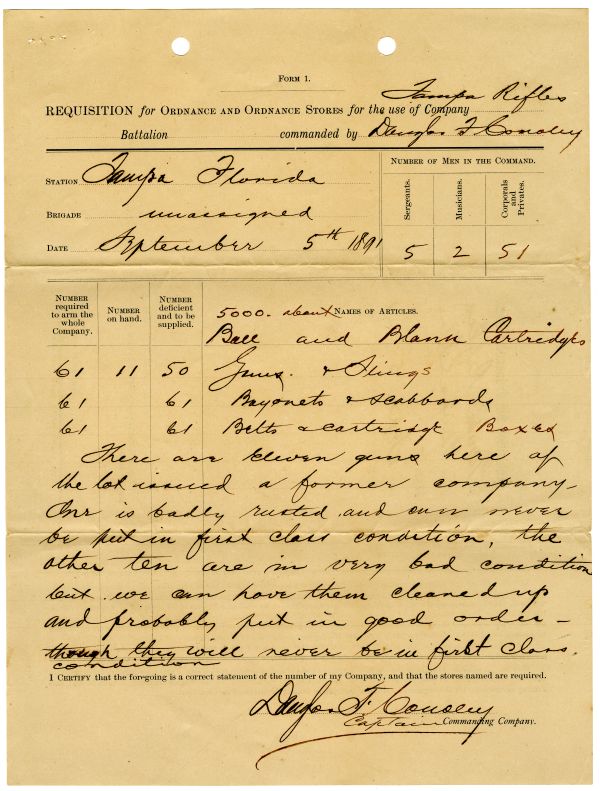 FORM 1.
REQUISITION for ORDNANCE AND ORDNANCE STORES for the use of Company Tampa Rifles
Battalion commanded by Douglas F. Conoley
STATION Tampa Florida
BRIGADE unassigned
DATE September 5th 1891
NUMBER OF MEN IN THE COMMAND.
Sergeants. Musicians. Corporals and Privates.
5 2 51
NUMBER required to arm the whole Company. NUMBER on hand. NUMBER deficient and to be supplied. NAMES OF ARTICLES.
5000. about
Ball and Blank Cartridges
61 11 50 Guns. & Slings
61 61 Bayonets & Scabbards
61 61 Belts & Cartridge Boxes
There are eleven guns here of
the lot issued a former company –
One is badly rusted and can never
be put in first class condition, the
other ten are in very bad condition
but we can have them cleaned up
and probably put in good order –
though they will never be in first class
condition
I CERTIFY that the foregoing is a correct statement of the number of my Company, and that the stores named are required.
Douglas F. Conoley
Captain Commanding Company.